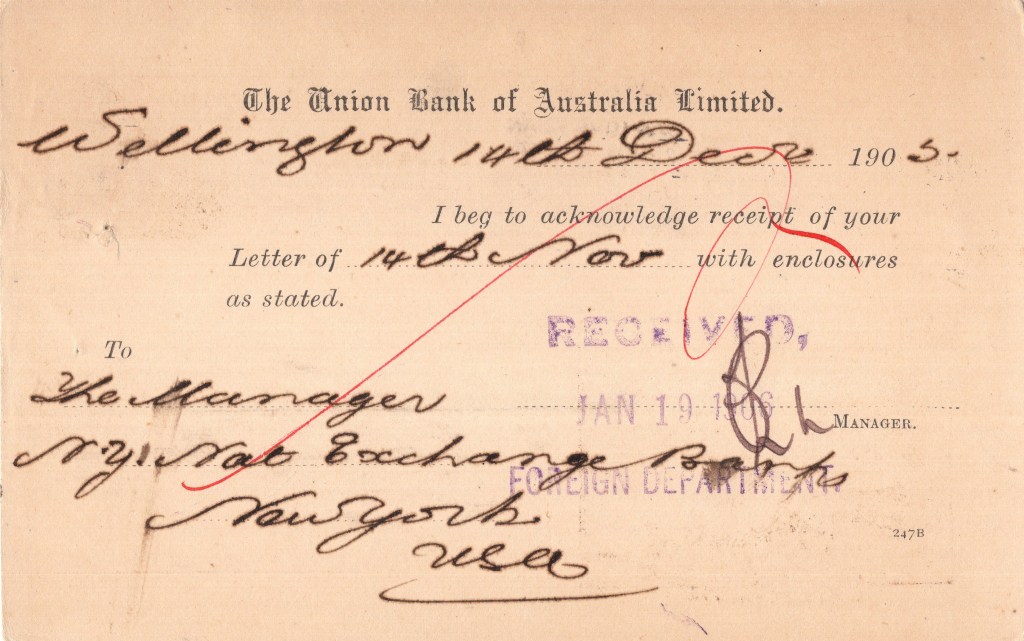 The Union Bank of Australia Limited.
Wellington 14th Decr 1905.
I beg to acknowledge receipt of your
Letter of 14th Nov with enclosures
as stated.
RECEIVED,
To
The Manager
JAN 19 1906
MANAGER.
N.Y. Nat Exchange Bank
FOREIGN DEPARTMENT.
New York
USA
247B